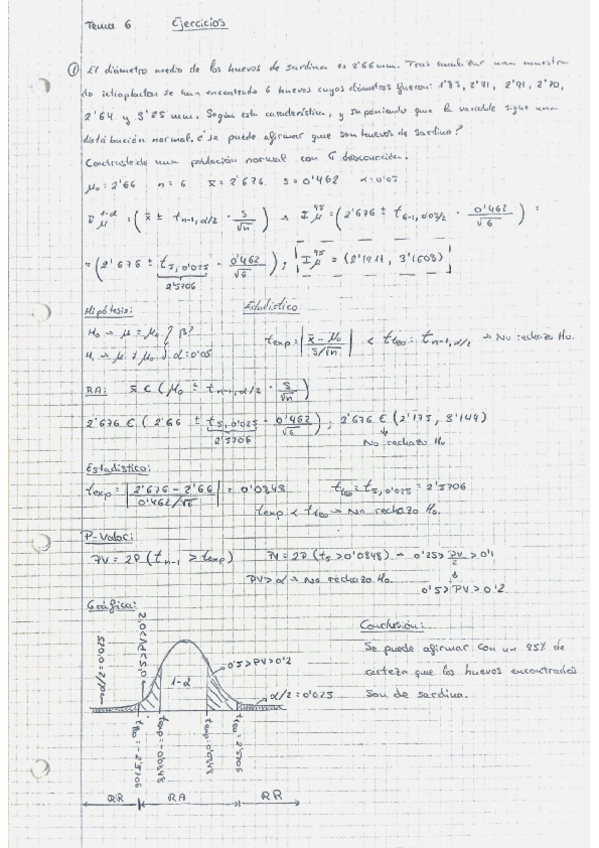 Tema 6 Ejercicios
① El diámetro medio de los huevos de sardina es 2'66mm. Tras analizar una muestra
de ictioplacton se han encontrado 6 huevos cuyos diámetros fueron: 1'83, 2'91, 2'70,
2'64 y 3'25 mm. Según esta característica, y suponiendo que la variable sigue una
distribución normal, ¿se puede afirmar que son huevos de sardina?
Contraste de una población normal con σ desconocida.
μ₀ = 2'66 n = 6 x̄ = 2'676 s = 0'462 α = 0'05
I_μ^{1-α} = (x̄ ± t_{n-1, α/2} · s/√n) → I_μ^{95} = (2'676 ± t_{6-1, 0'05/2} · 0'462/√6) =
= (2'676 ± t_{5, 0'025} · 0'462/√6) ; I_μ^{95} =
2'5706
Hipótesis: Estadístico
H₀ → μ = μ₀ β?
H₁ → μ ≠ μ₀ α = 0'05
t_exp = |x̄ - μ₀ / s/√n| < t_teo = t_{n-1, α/2} → No rechazo H₀.
RA: x̄ ∈ (μ₀ ± t_{n-1, α/2} · s/√n)
2'676 ∈ (2'66 ± t_{5, 0'025} · 0'462/√6) ; 2'676 ∈ (2'175, 3'144)
2'5706
No rechazo H₀
Estadístico:
t_exp = |2'676 - 2'66 / 0'462/√6| = 0'0848 t_teo = t_{5, 0'025} = 2'5706
t_exp < t_teo → No rechazo H₀.
P-Valor:
PV = 2P (t_{n-1} > t_exp) PV = 2P (t₅ > 0'0848) → 0'25 > PV/2 > 0'1
PV > α → No rechazo H₀.
0'5 > PV > 0'2
Gráfica:
α/2 = 0'025
1-α
0'5 > PV > 0'2
α/2 = 0'025
t_teo = -2'5706
t_exp = -0'0848
t_exp = 0'0848
t_teo = 2'5706
RR RA RR
Conclusión:
Se puede afirmar con un 95% de
certeza que los huevos encontrados
son de sardina.